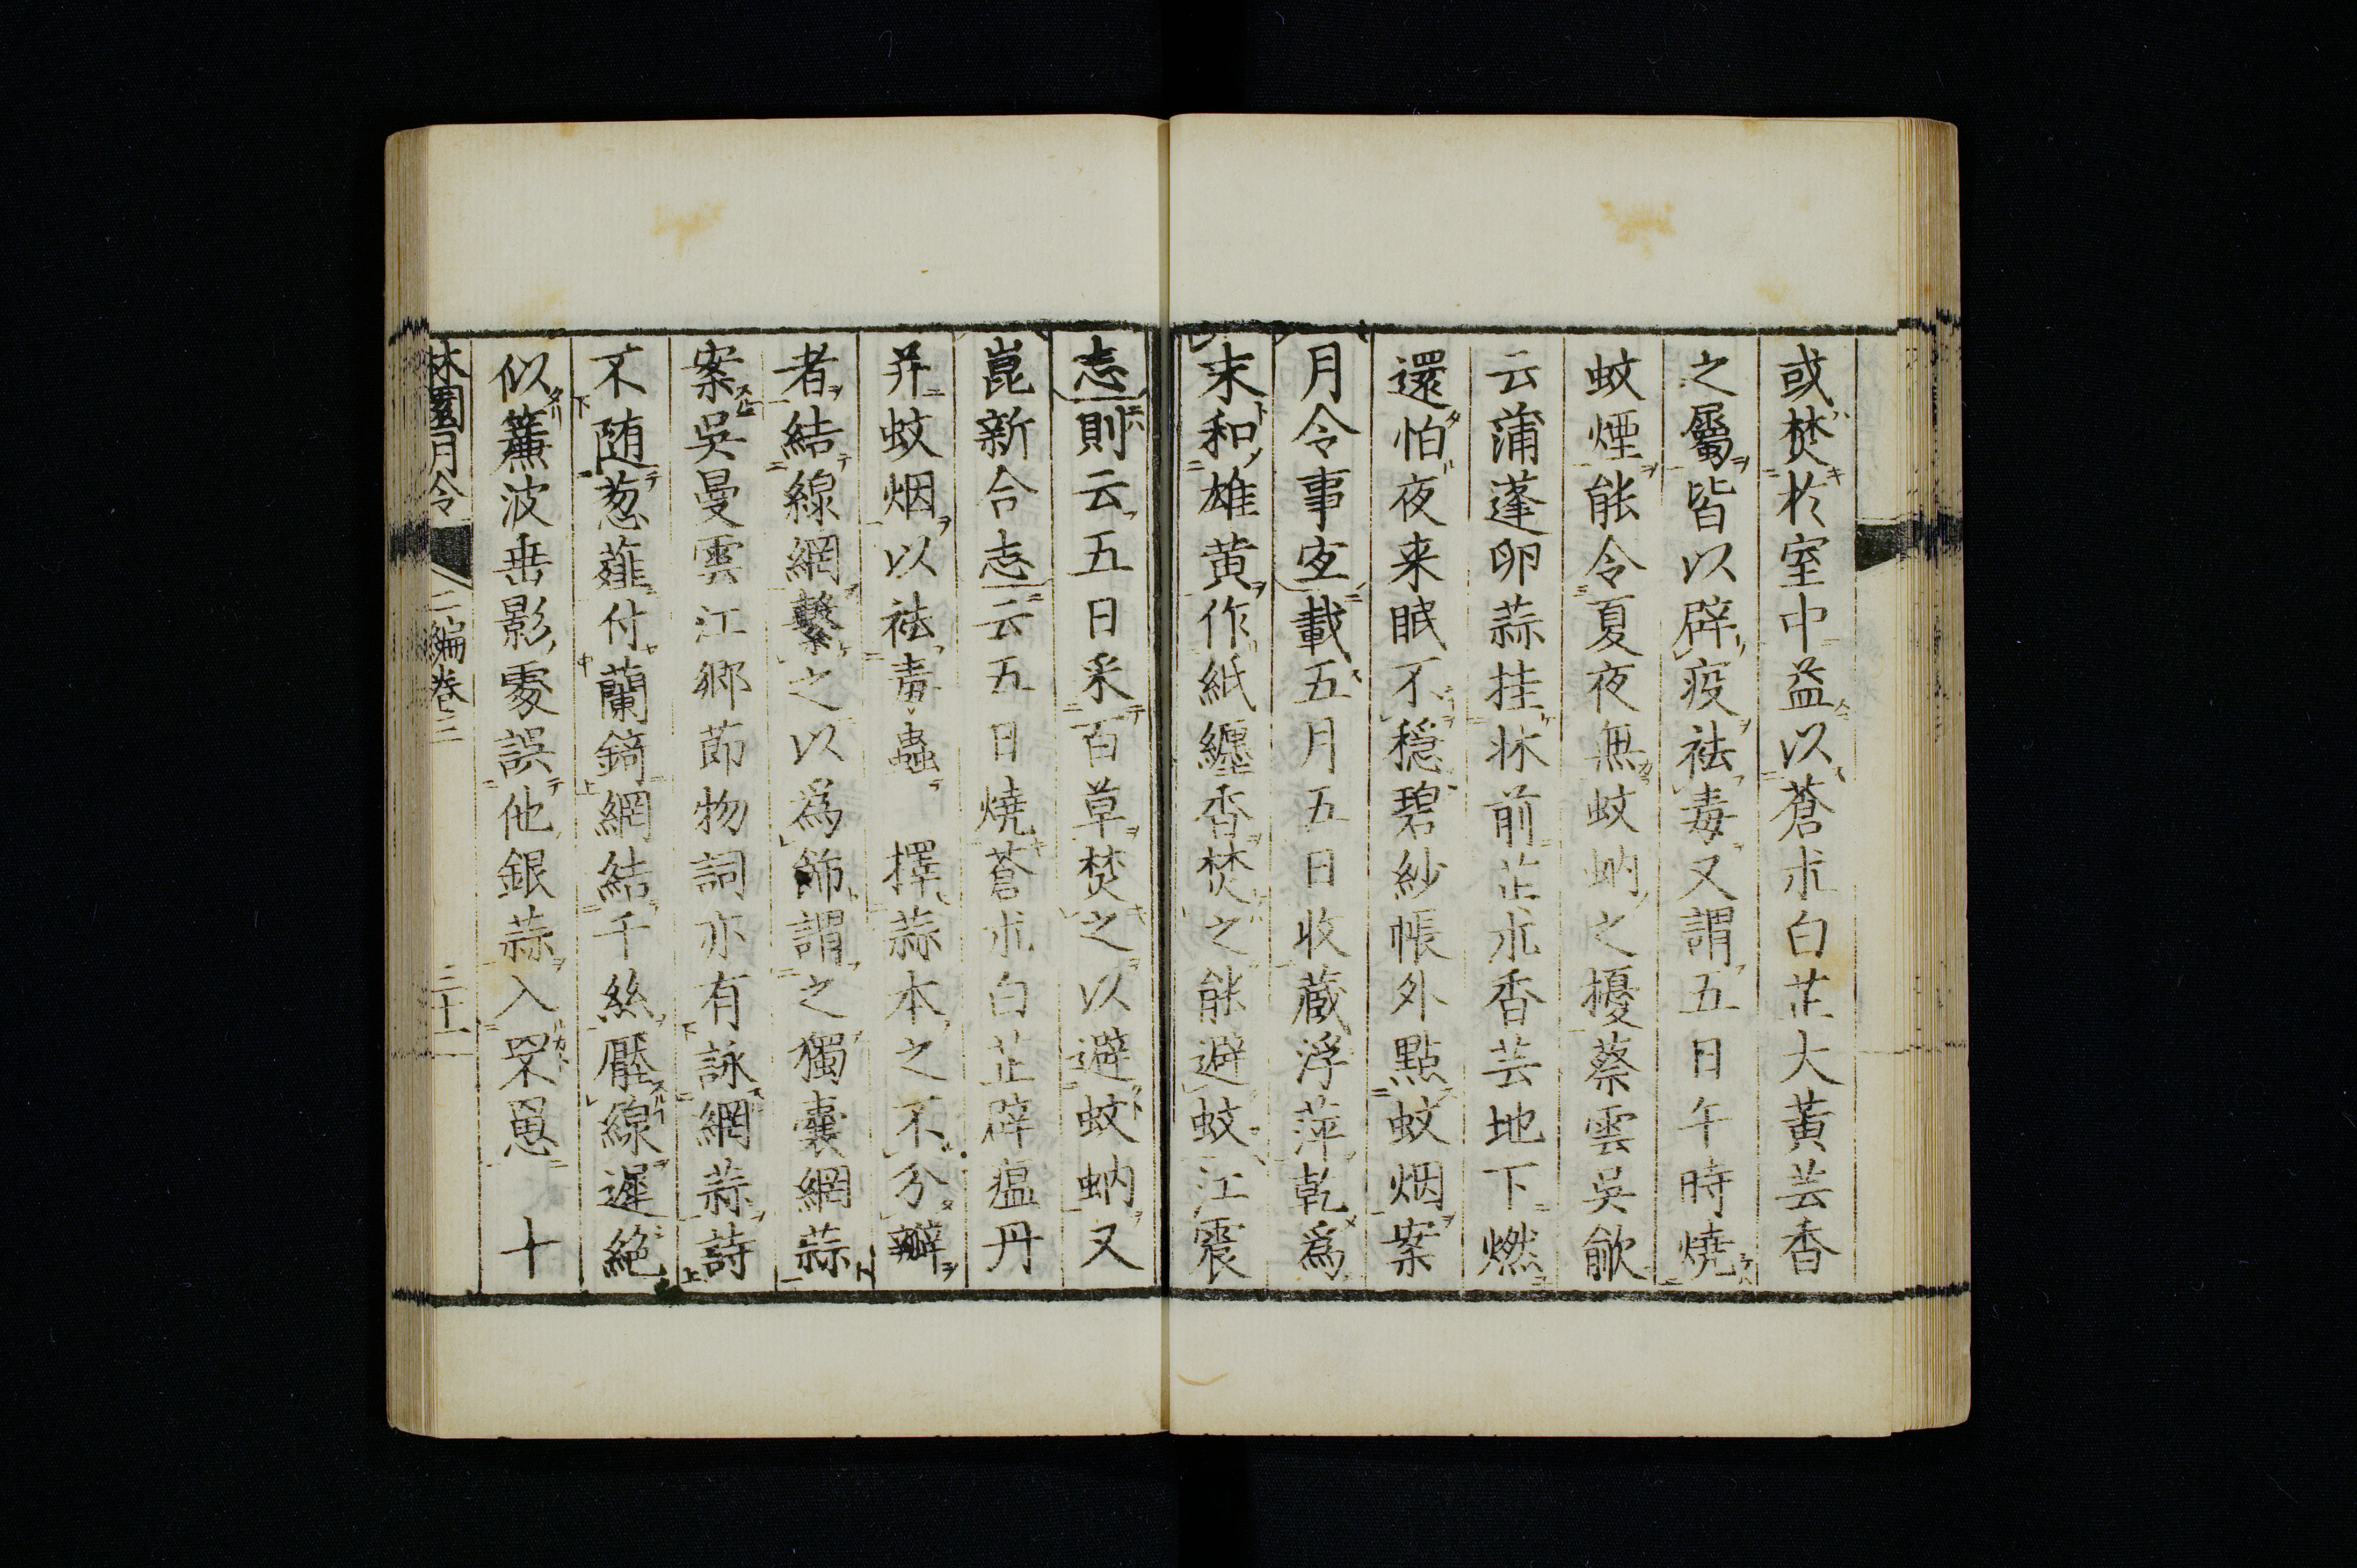 或焚於室中益以蒼朮白芷大黄芸香
之屬皆以辟疫祛毒又謂五日午時燒
蚊煙能令夏夜無蚊蚋之擾蔡雲吳歈
云蒲蓬卵蒜挂牀前芷朮香芸地下燃
還怕夜来眠不穏碧紗帳外點蚊烟案
月令事宐載五月五日收蔵浮萍乾爲
末和雄黄作紙纏香焚之能避蚊江震
志則云五日采百草焚之以避蚊蚋又
崑新合志云五日燒蒼朮白芷辟瘟丹
并蚊烟以祛毒蟲 擇蒜本之不分瓣
者結線網繫之以為飾謂之獨囊網蒜
案吳曼雲江郷莭物詞亦有詠網蒜詩
不随葱薤付蘭錡網結千絲壓線遲絶
似簾波垂影處誤他銀蒜入罘罳 十
林園月令 二編卷三 三十一